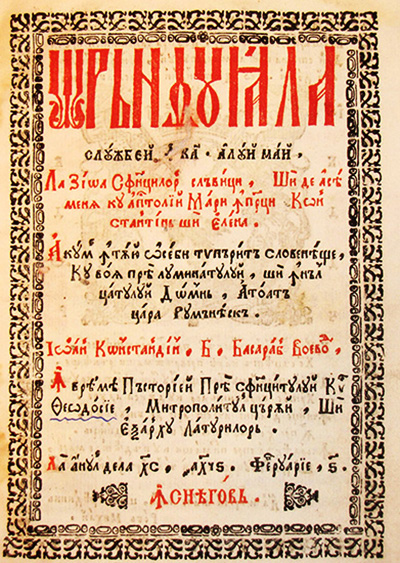 ѠРЪНДОУꙖЛА
слꙋжбей, к҃а. алꙋй май,
Ла зїѡа Сфинцилорꙋ слъвици, Ши де асѣ
меня кꙋ апⷭтолїи Мари ꙟпⷬраци Кѡн
стантинь ши Елена.
Акꙋмꙋ ꙟтѫй ѡсеби типърит словенѣще,
Кꙋ воя прѣ лꙋминатꙋлꙋи, ши ꙟнъл
цатꙋлꙋй Дѡмнь, Атоатъ
цара Рꙋмѫнѣскъ.
Іѡан Кѡнстандїн, Б, Басараб Воевод,
Ꙟ врѣмѣ Пъсторїей Прѣ сфинцитꙋлꙋй Кѵр
Ѳеодосїе, Митрополитꙋл църїй, Ши
Еѯархꙋ Латꙋрилорь.
Ла анꙋл дела х҃с, ҂ахчѕ. Феврꙋарїе, ѕ.
Ꙟ Снѣговъ.